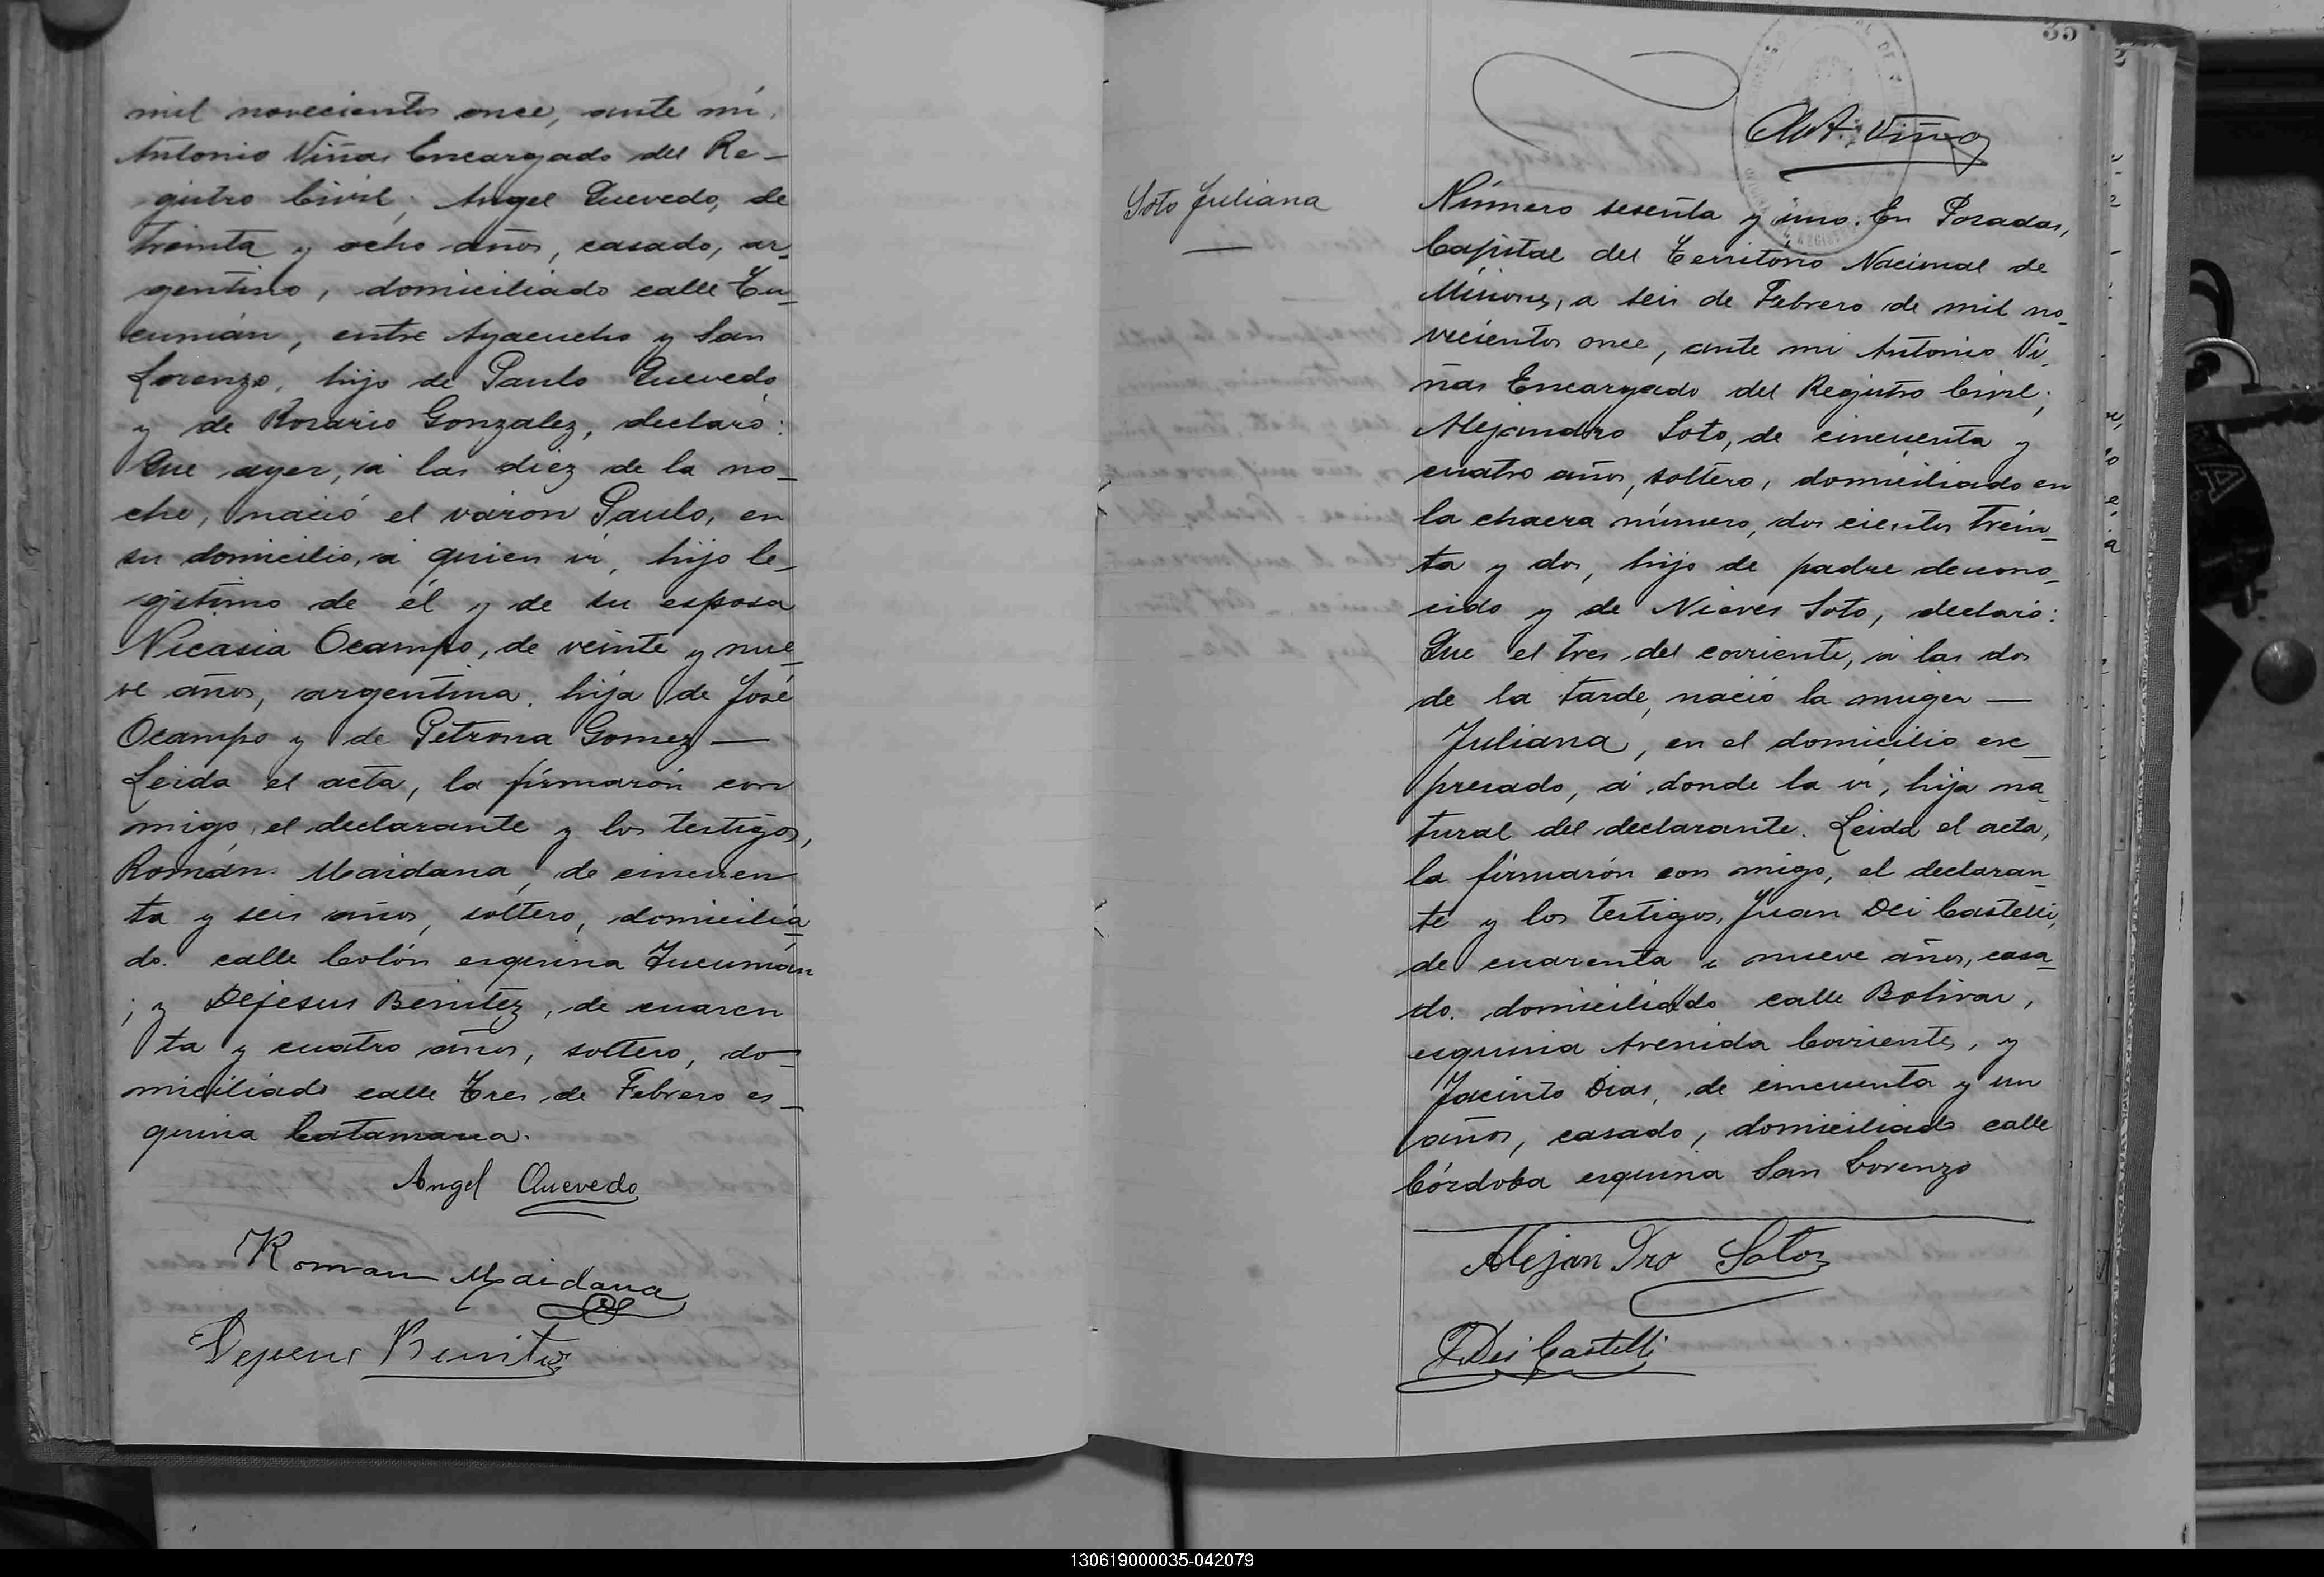 mil novecientos once, ante mí,
Antonio Viñas Encargado del Re-
gistro Civil; Angel Quevedo, de
treinta y ocho años, casado, ar-
gentino, domiciliado calle Tu-
cumán, entre Ayacucho y San
Lorenzo, hijo de Paulo Quevedo
y de Rosario Gonzalez, declaró:
Que ayer, á las diez de la no-
che, nació el varon Paulo, en
su domicilio, á quien ví, hijo le-
gitimo de él y de su esposa
Nicasia Ocampo, de veinte y nue-
ve años, argentina, hija de José
Ocampo y de Petrona Gomez —
Leida el acta, la firmarón con
migo, el declarante y los testigos,
Román Maidana, de cincuen
ta y seis años, soltero, domicilia-
do. calle Colón esquina Tucumán
; y Dejesus Benitez, de cuaren
ta y cuatro años, soltero, do-
miciliado calle Tres de Febrero es-
quina Catamarca.
Angel Quevedo
Roman Maidana
Dejesus Benitez
35
Ant. Viñas
Soto Juliana
Número sesenta y uno. En Posadas,
Capital del Territorio Nacional de
Misiones, a seis de Febrero de mil no-
vecientos once, ante mi Antonio Vi-
ñas Encargado del Registro Civil;
Alejandro Soto, de cincuenta y
cuatro años, soltero, domiciliado en
la chacra número, dos cientos trein-
ta y dos, hijo de padre descono-
cido y de Nieves Soto, declaró:
Que el tres del corriente, á las dos
de la tarde, nació la muger —
Juliana, en el domicilio exc-
presado, á donde la ví, hija na-
tural del declarante. Leida el acta,
la firmarón con migo, el declaran-
te y los testigos, Juan Dei Castelli,
de cuarenta y nueve años, casa-
do. domiciliado calle Bolivar,
esquina Avenida Corrientes, y
Jacinto Dias, de cincuenta y un
años, casado, domiciliado calle
Córdoba esquina San Lorenzo
Alejandro Soto
J. Dei Castelli
130619000035-042079